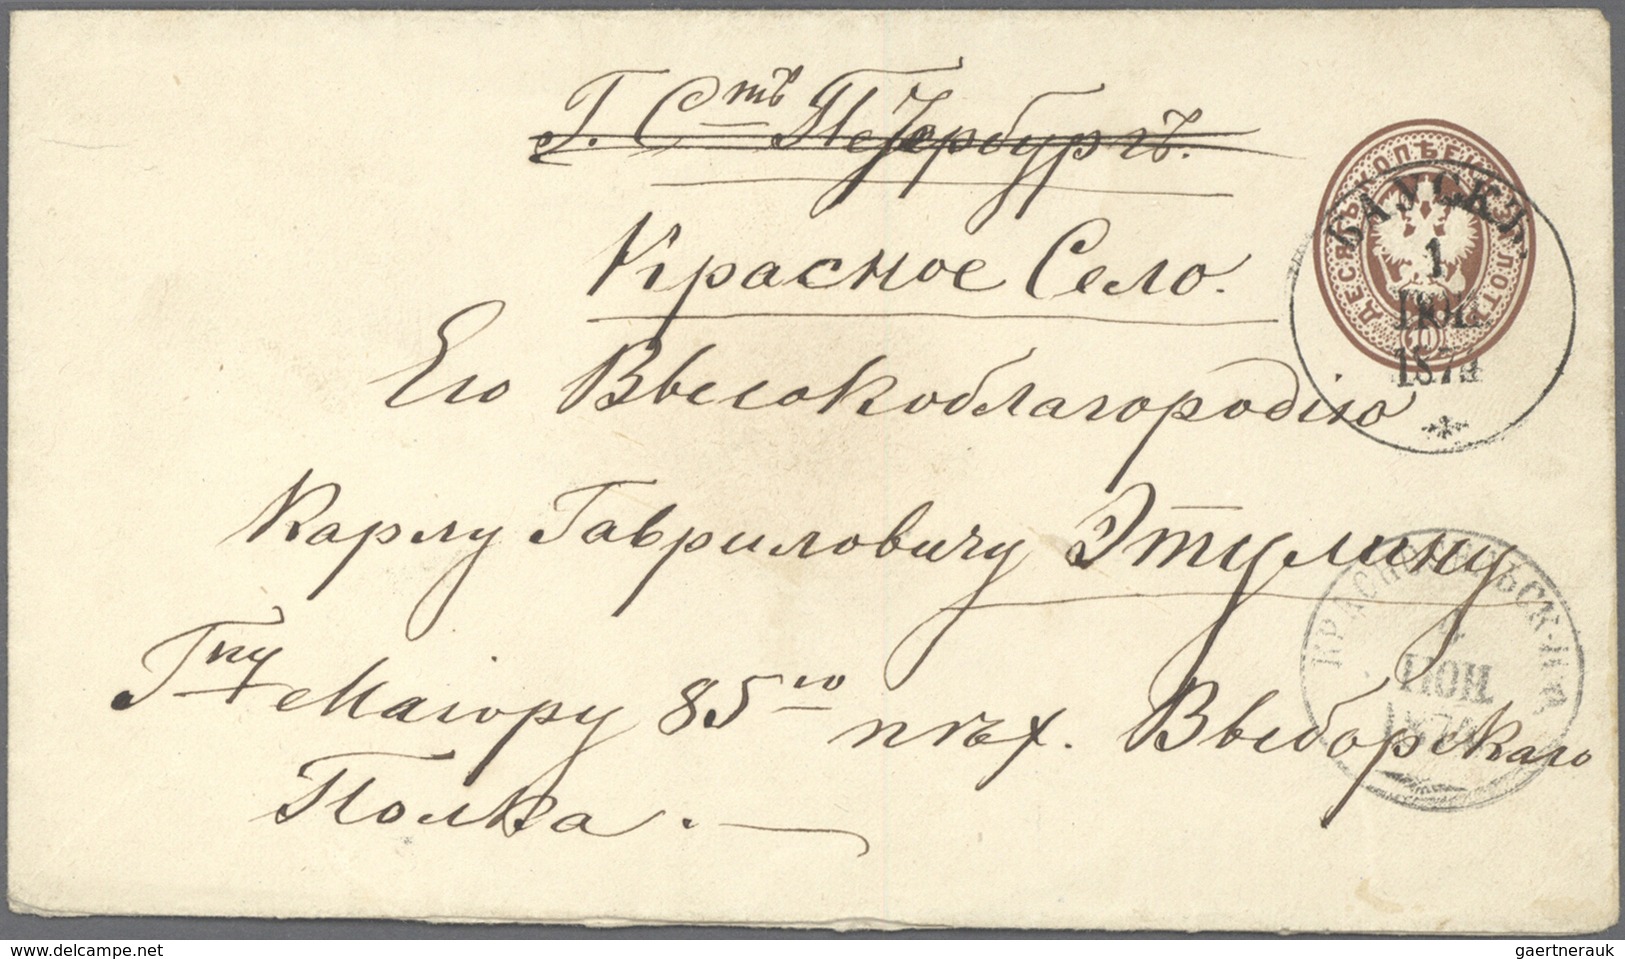 Г. Стъ Петербургъ.
Красное Село.
Его Высокоблагородію
Карлу Гавриловичу Этулину
Гну Маіору 85го пѣх. Выборскаго
Полка.
ДЕСЯТЬ КОПѢЕКЪ ЗА ЛОТЪ
10
БАУСКЪ
1
ІЮН.
1874
КРАСНОСЕЛЬСК.
ІЮН.
1874
www.delcampe.net
gaertnerauk